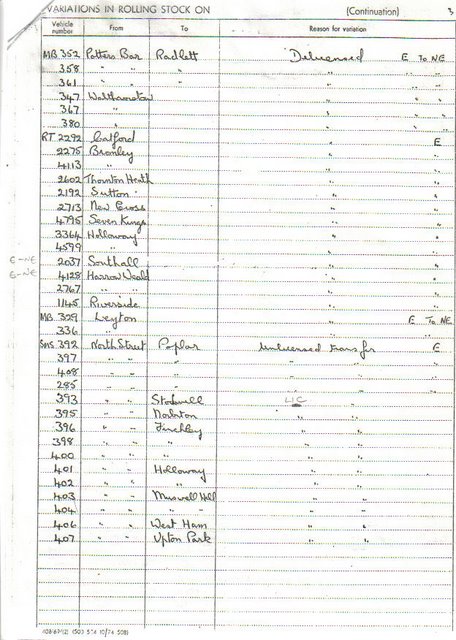 VARIATIONS IN ROLLING STOCK ON (Continuation) 3
Vehicle number From To Reason for variation
MB 352 Potters Bar Radlett Delicensed E To NE
358 " " " " " "
361 " " " " " "
347 Walthamstow " " "
367 " " " "
380 " " " "
RT 2292 Catford " E
2275 Bromley " "
4113 " " "
2602 Thornton Heath " "
2192 Sutton " "
2713 New Cross " "
4795 Seven Kings " "
3364 Holloway " "
4599 " " "
E-NE 2037 Southall " "
E-NE 4128 Harrow Weald " "
2767 " " " "
1145 Riverside " "
MB 329 Leyton " E To NE
336 " " " "
SMS 392 North Street Poplar Unlicensed transfer E
397 " " " " " "
408 " " " " " "
285 " " " " " "
393 " " Stockwell LIC "
395 " " Norbiton " "
396 " " Finchley " "
398 " " " " "
400 " " " " "
401 " " Holloway " "
402 " " " " "
403 " " Muswell Hill " "
404 " " " " "
406 " " West Ham " "
407 " " Upton Park " "